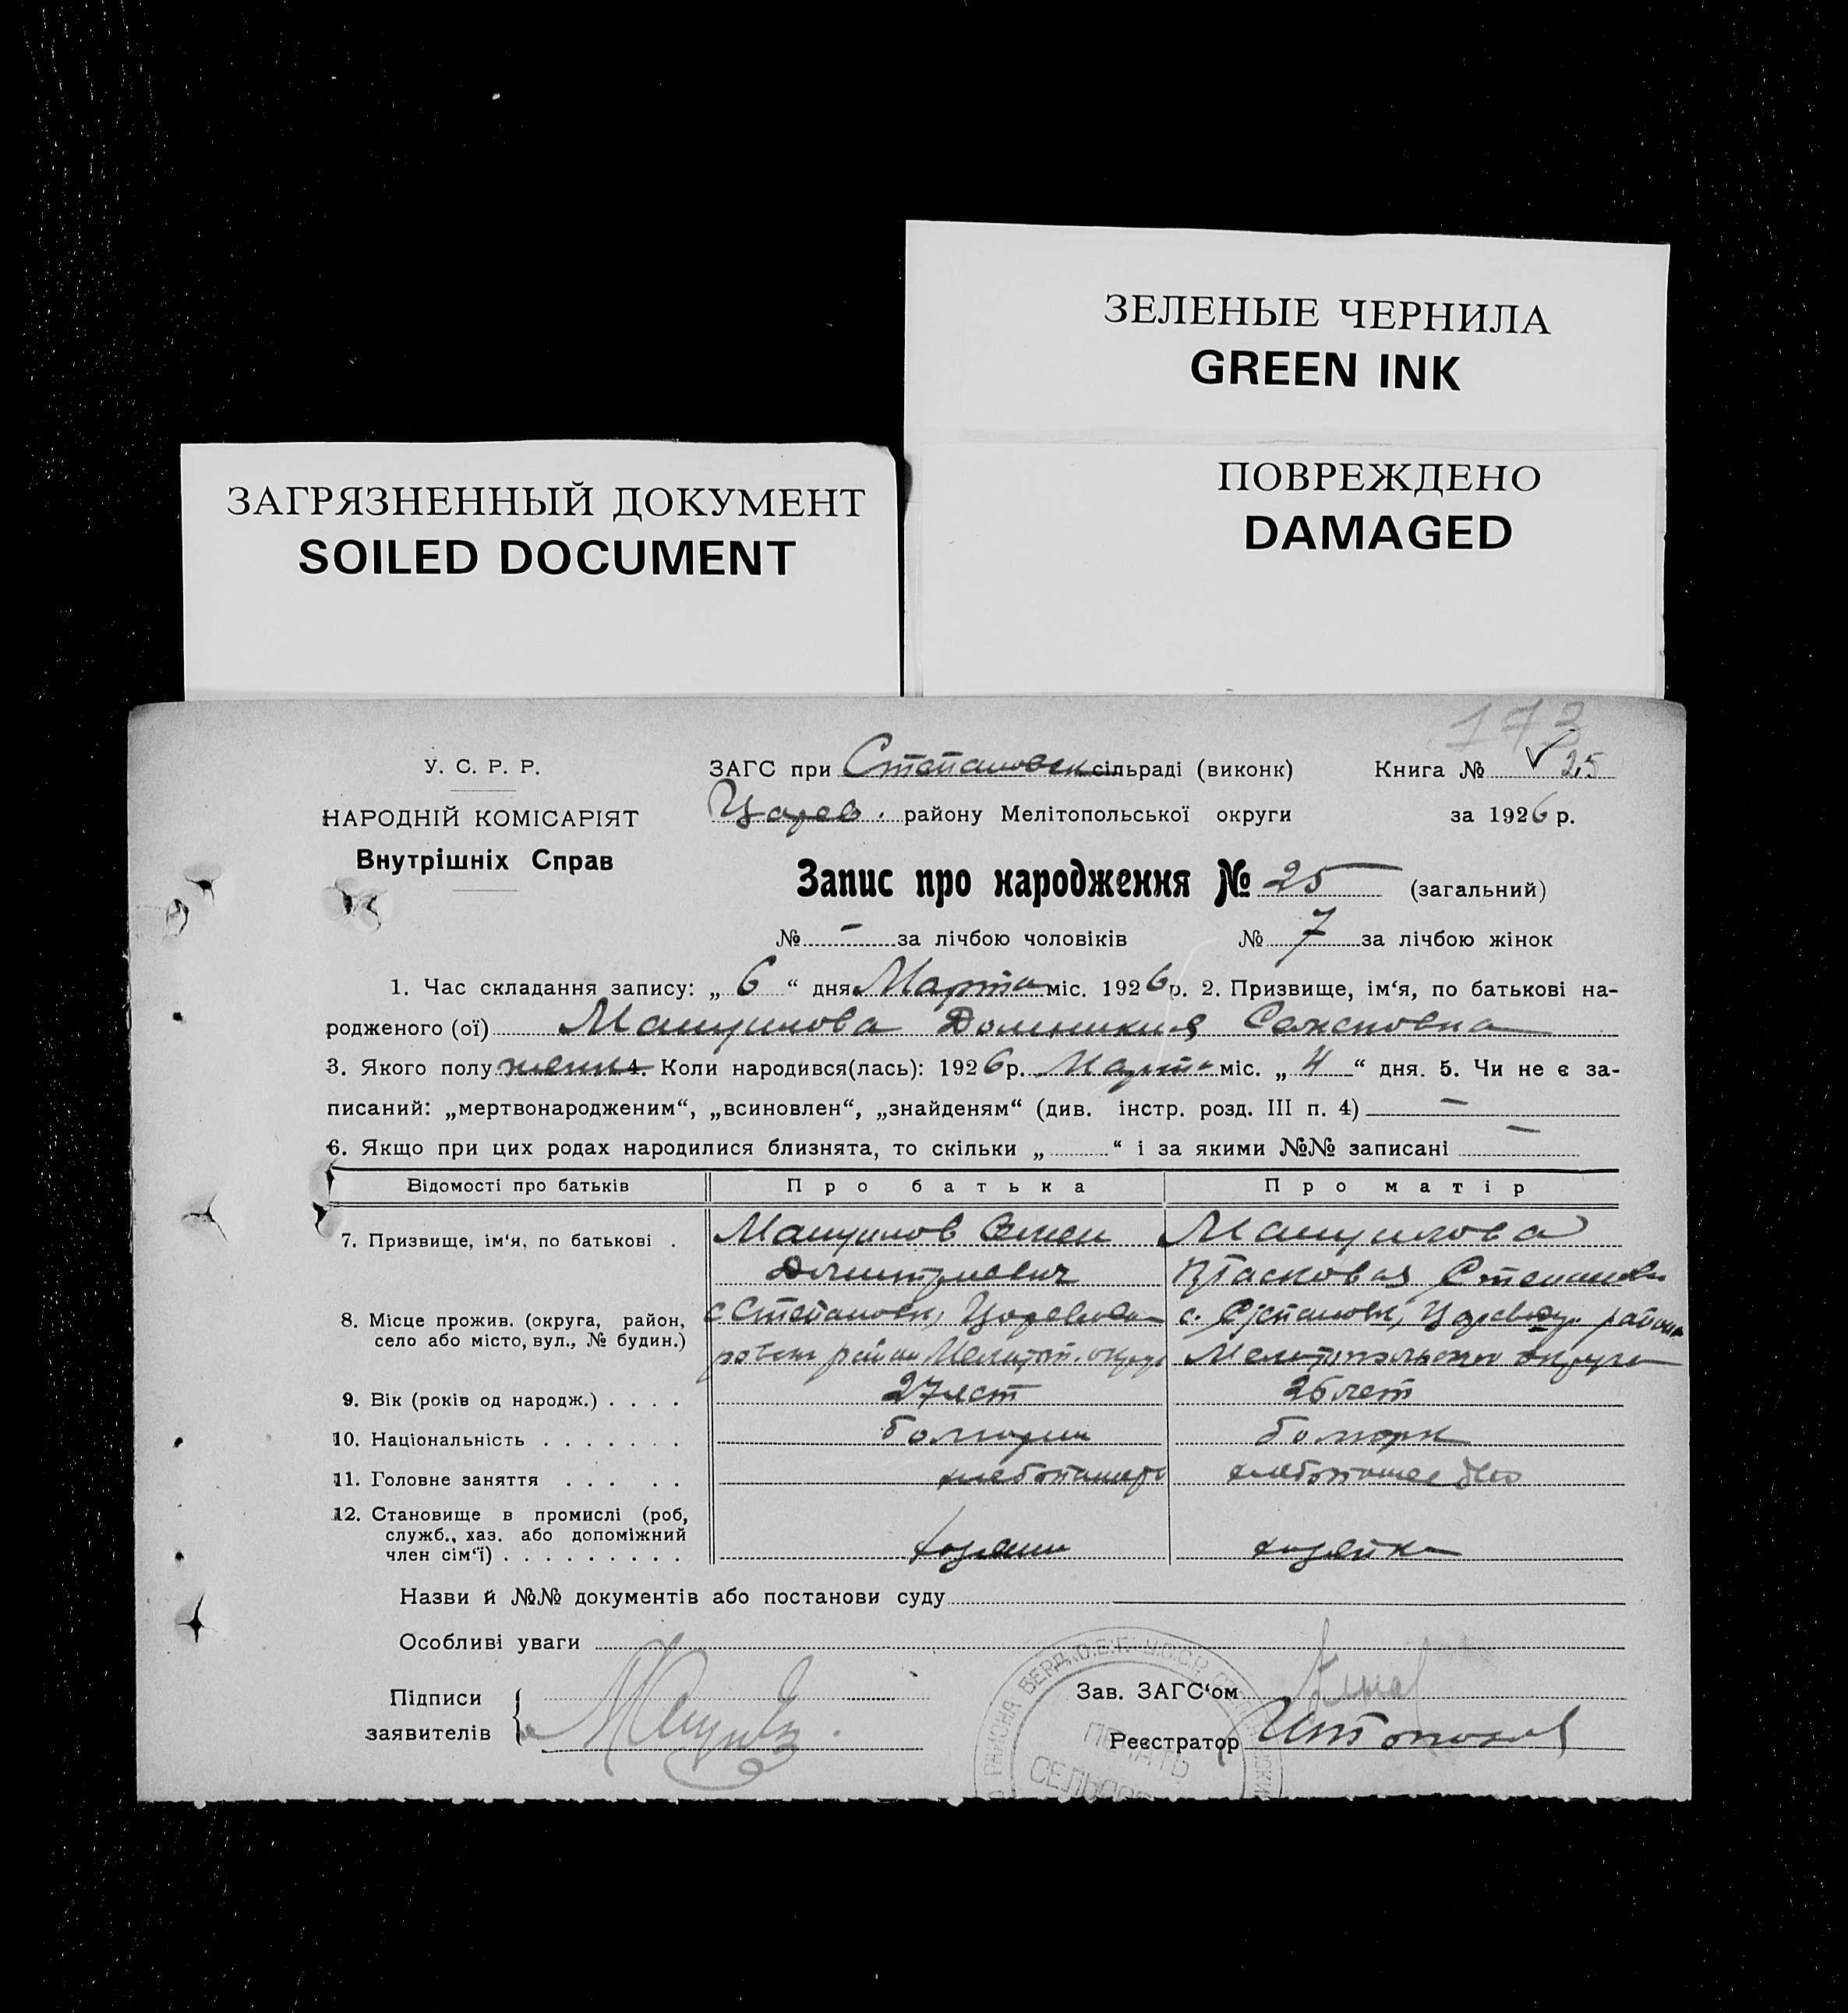 ЗЕЛЕНЫЕ ЧЕРНИЛА
GREEN INK
ЗАГРЯЗНЕННЫЙ ДОКУМЕНТ
SOILED DOCUMENT
ПОВРЕЖДЕНО
DAMAGED
173
У. С. Р. Р.
НАРОДНІЙ КОМІСАРІЯТ
Внутрішніх Справ
ЗАГС при Степановск сільраді (виконк) Книга № 25
Царев. району Мелітопольської округи за 1926 р.
Запис про народження № 25 (загальний)
№ - за лічбою чоловіків № 7 за лічбою жінок
1. Час складання запису: „ 6 “ дня Марта міс. 1926 р. 2. Призвище, ім‘я, по батькові на-
родженого (ої) Машунова
3. Якого полу женск 4. Коли народився(лась): 1926 р. Марта міс. „ 4 “ дня. 5. Чи не є за-
писаний: „мертвонародженим“, „всиновлен“, „знайденям“ (див. інстр. розд. III п. 4) —
6. Якщо при цих родах народилися близнята, то скільки „ “ і за якими №№ записані —
Відомості про батьків Про батька Про матір
7. Призвище, ім‘я, по батькові . Машунов Машунова
Дмитриевич Степановна
8. Місце прожив. (округа, район, село або місто, вул., № будин.) с Степановк, с. Степановк, района
район Мелитоп. округа Мелитопольского округа
9. Вік (років од народж.) . . . . 27 лет 26 лет
10. Національність . . . . . . . болгарин болгарк
11. Головне заняття . . . . . хлебопашер
12. Становище в промислі (роб,
служб., хаз. або допоміжний
член сім‘ї) . . . . . . . . . хозяин хозяйка
Назви й №№ документів або постанови суду
Особливі уваги
Підписи
заявителів
Зав. ЗАГС‘ом
Реєстратор
ПЕЧАТЬ